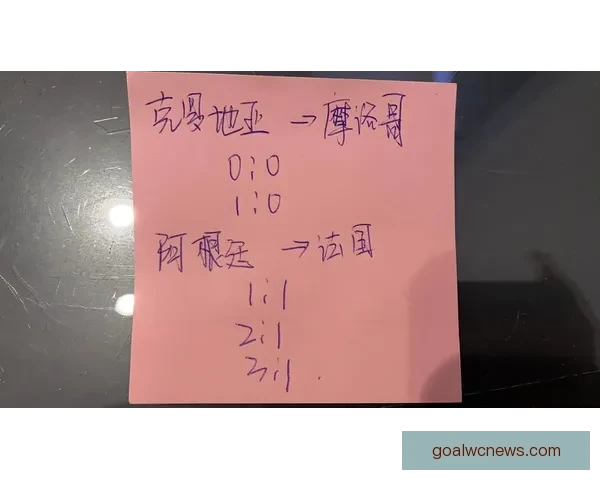 克罗地亚 → 摩洛哥
0:0
1:0
阿根廷 → 法国
1:1
2:1
3:1.
goalwcnews.com